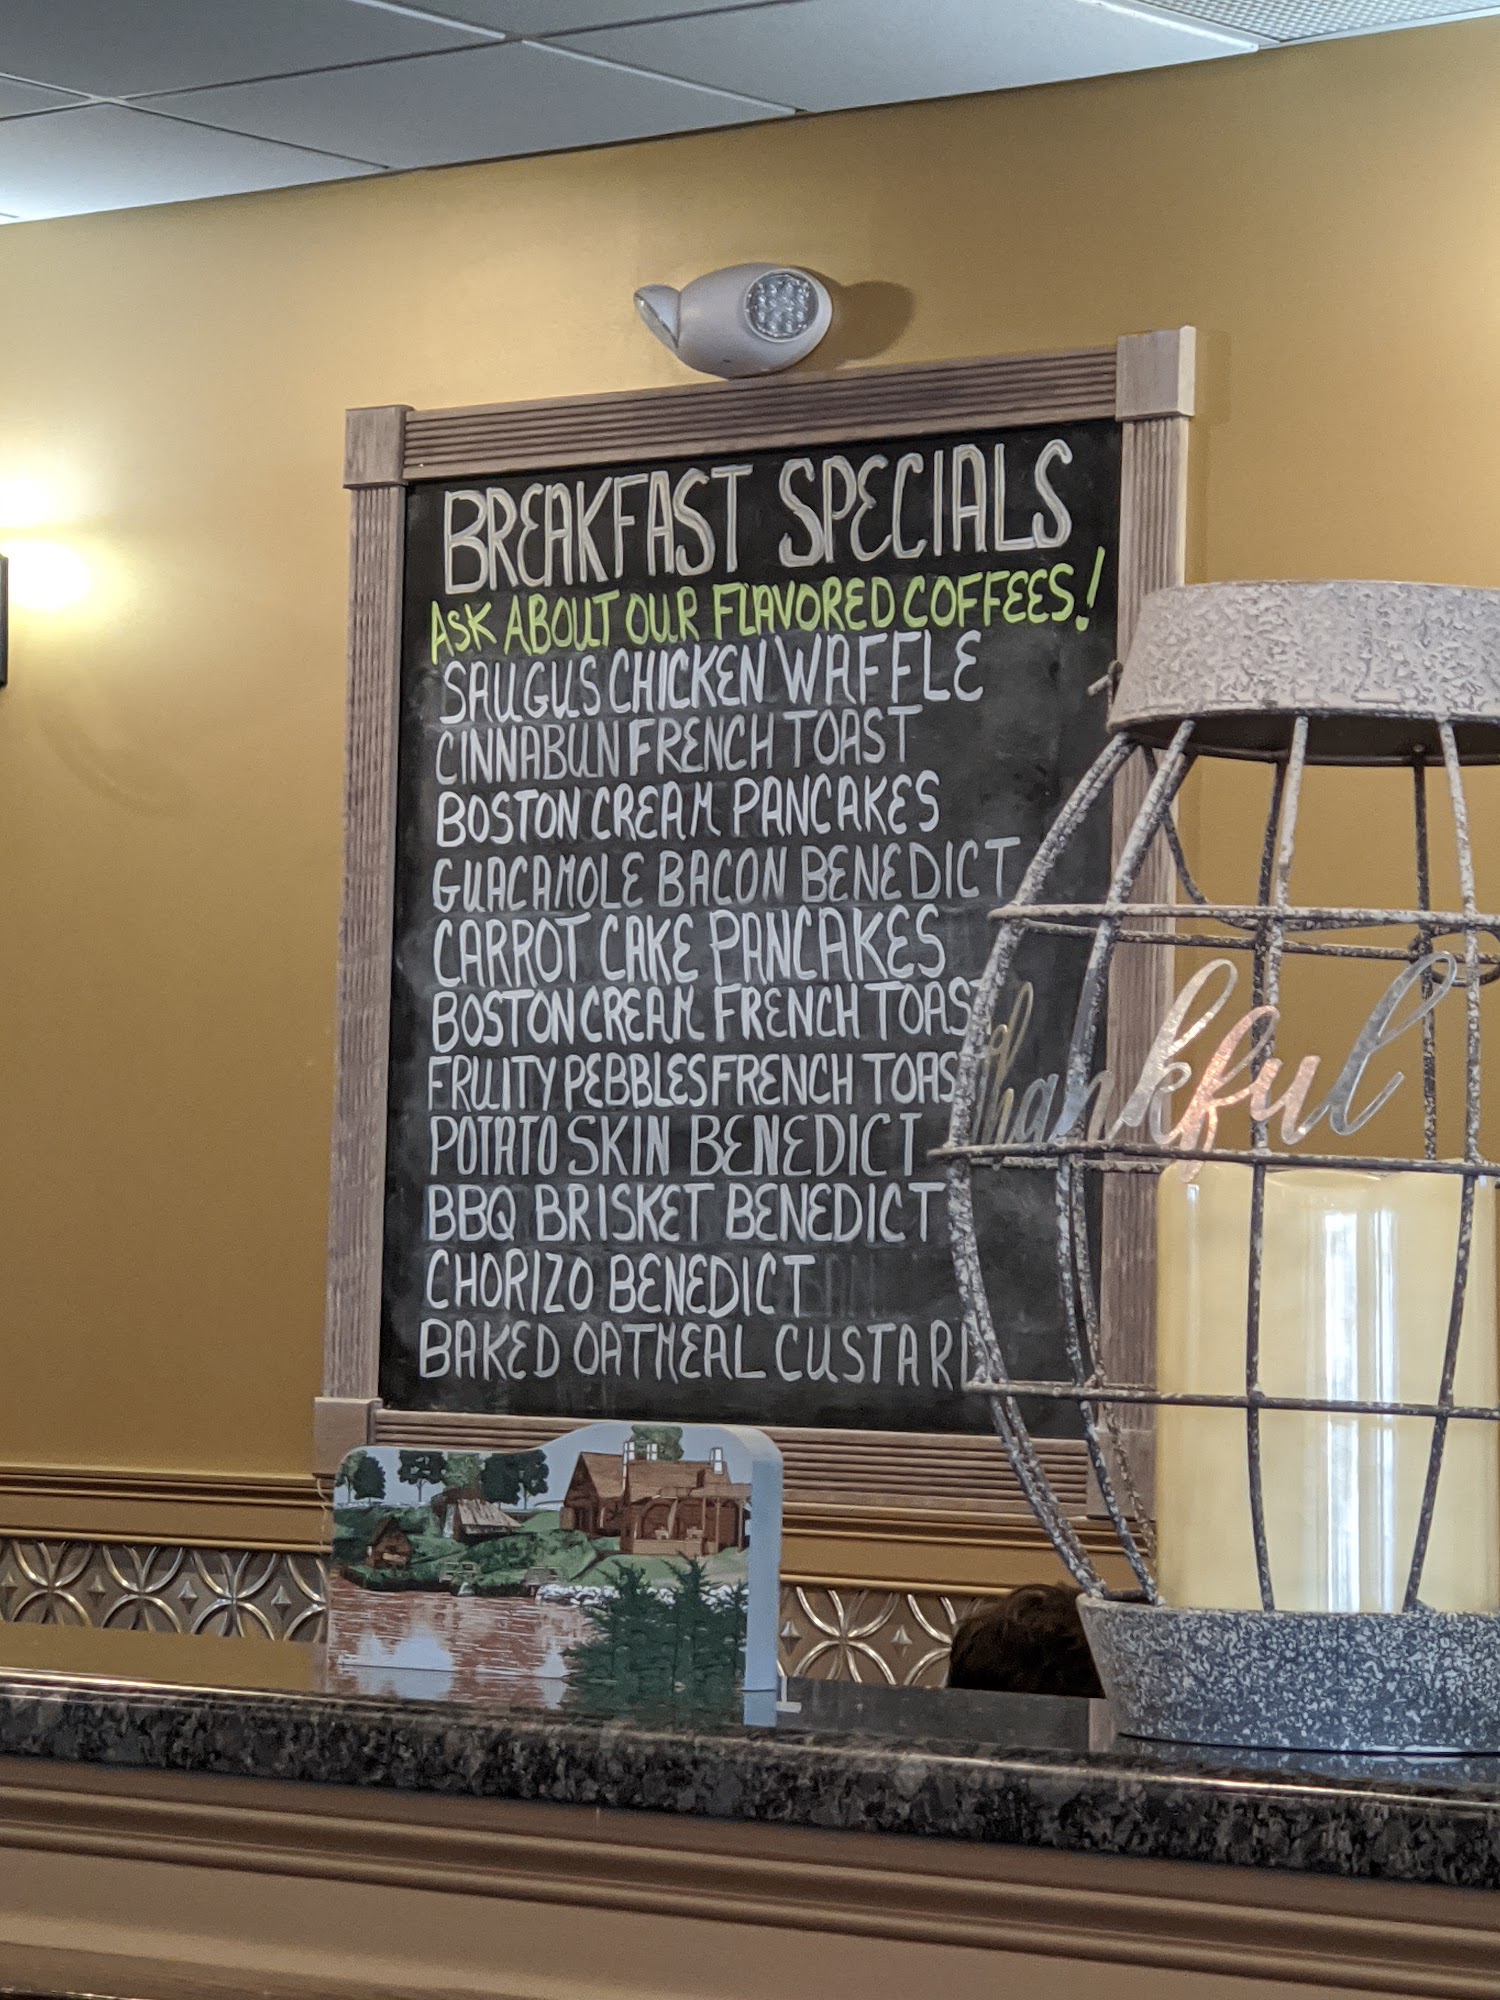 BREAKFAST SPECIALS
ASK ABOUT OUR FLAVORED COFFEES!
SAUGUS CHICKEN WAFFLE
CINNABUN FRENCH TOAST
BOSTON CREAM PANCAKES
GUACAMOLE BACON BENEDICT
CARROT CAKE PANCAKES
BOSTON CREAM FRENCH TOAST
FRUITY PEBBLES FRENCH TOAS
POTATO SKIN BENEDICT
BBQ BRISKET BENEDICT
CHORIZO BENEDICT
BAKED OATMEAL CUSTARD
thankful